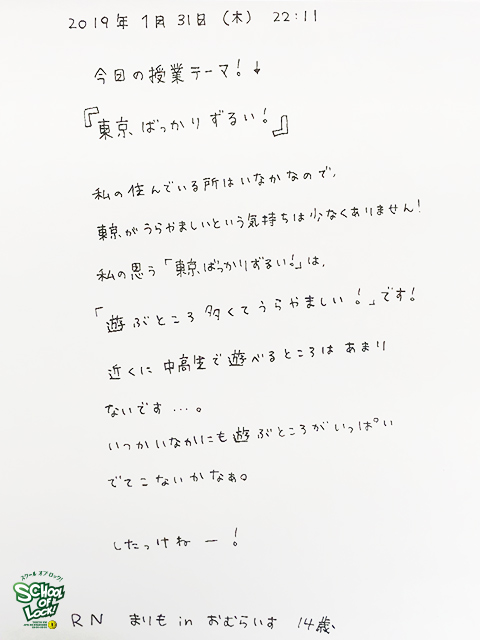 2019年1月31日（木） 22:11
今日の授業テーマ！↓
『東京ばっかりずるい！』
私の住んでいる所はいなかなので、
東京がうらやましいという気持ちは少なくありません！
私の思う「東京ばっかりずるい！」は、
「遊ぶところ多くてうらやましい！」です！
近くに中高生で遊べるところはあまり
ないです…。
いつかいなかにも遊ぶところがいっぱい
でてこないかなぁ。
したっけねー！
スクール オブ ロック!
SCHOOL
OF
LOCK!
RN まりも in おむらいす 14歳、